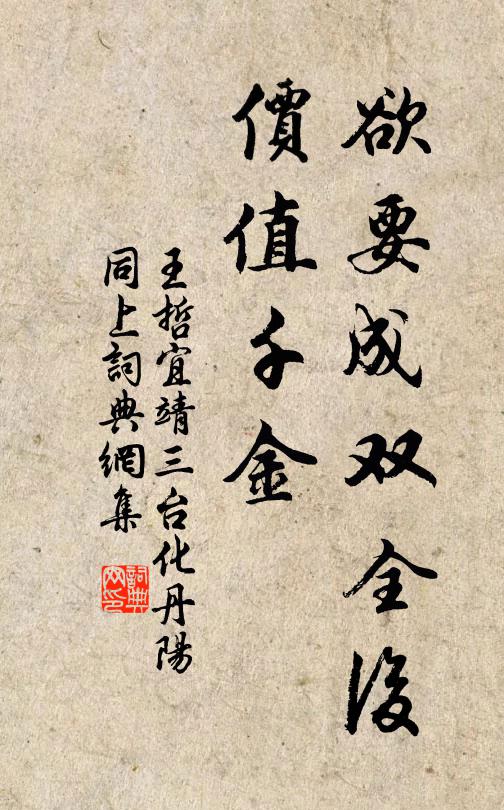 欲要成双全後
價值千金
王哲宜靖三台化丹陽
同上詞典網集
詞典网印